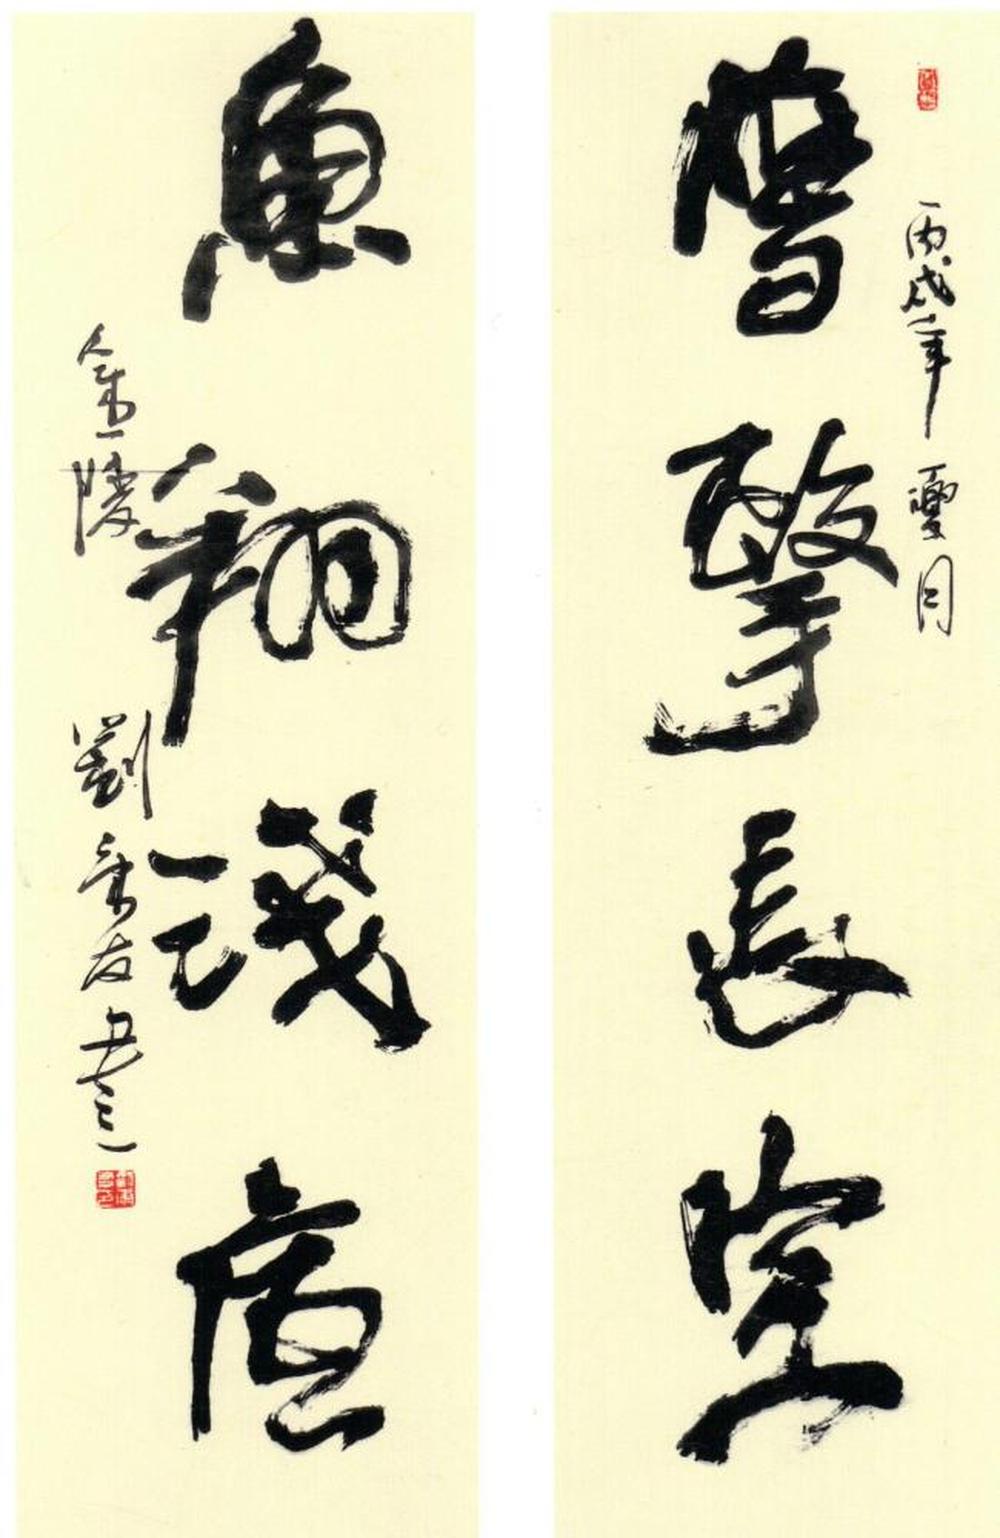 丙戌年夏月
鷹擊長空
魚翔淺底
金陵劉友書